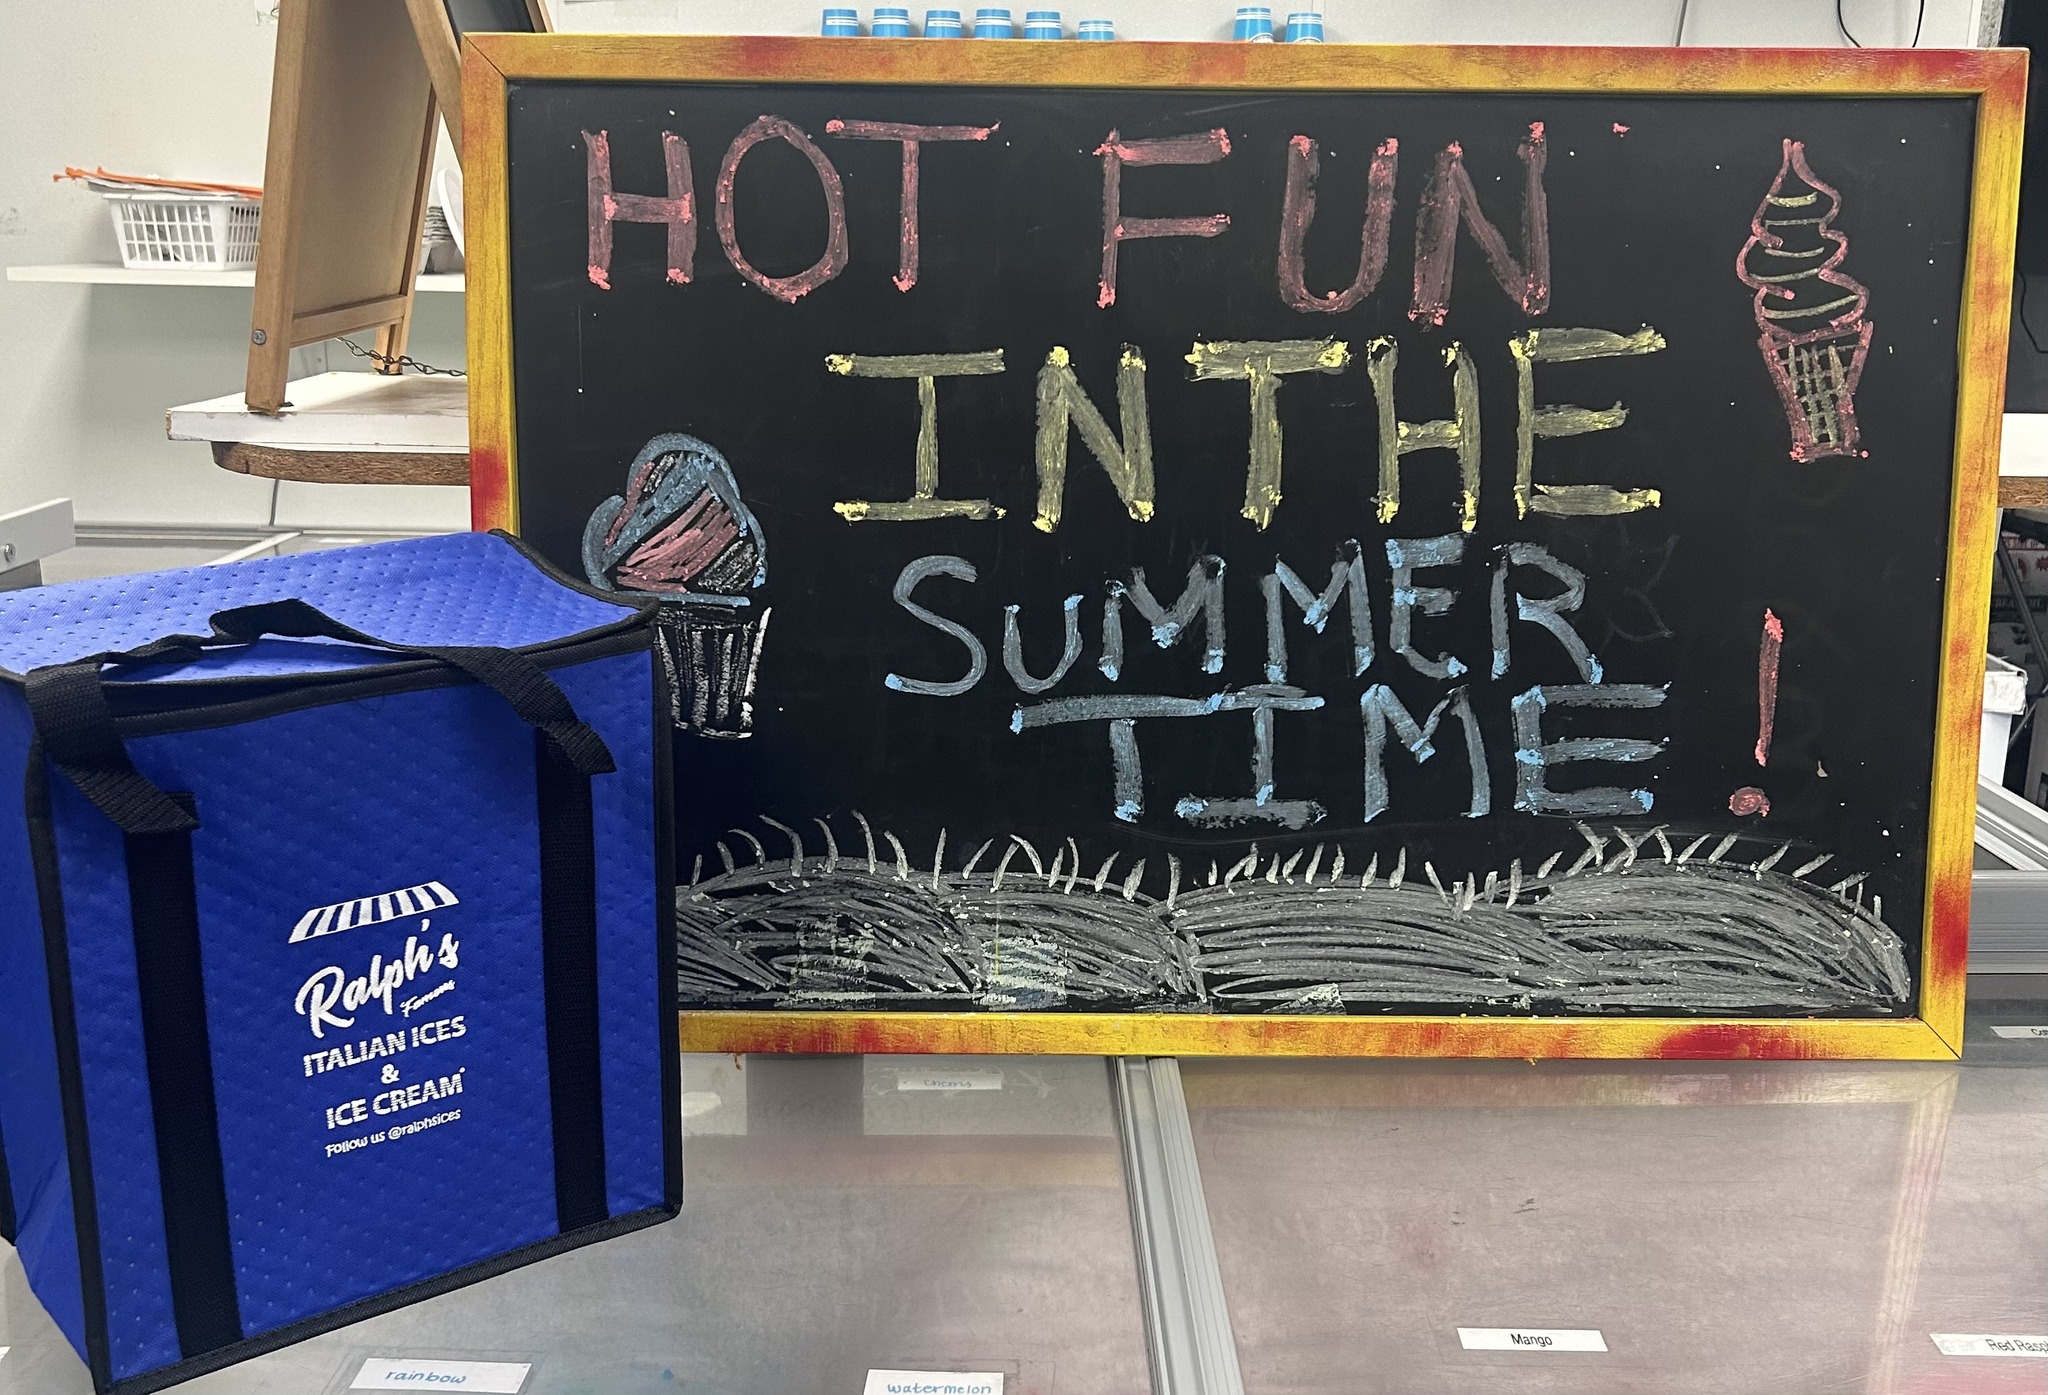 HOT FUN
IN THE
SUMMER
TIME !
Ralph's
Famous
ITALIAN ICES
&
ICE CREAM
Follow us @ralphsices
cherry
Mango
rainbow
watermelon